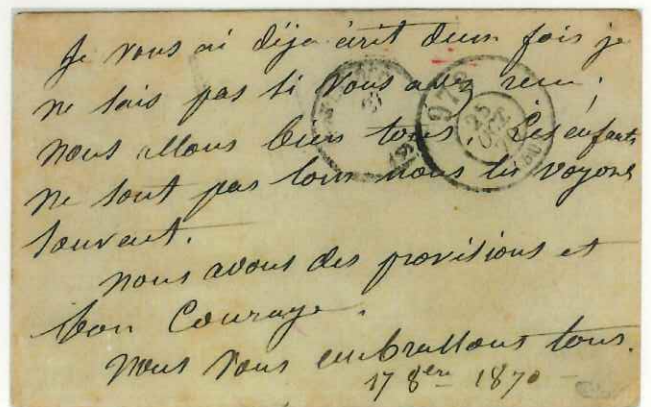 Je vous ai déja écrit deux fois je
ne sais pas si vous avez recu ;
nous allons bien tous. Les enfants
ne sont pas loin nous les voyons
souvent.
nous avons des provisions et
bon Courage.
nous vous embrassons tous.
17 8bre 1870